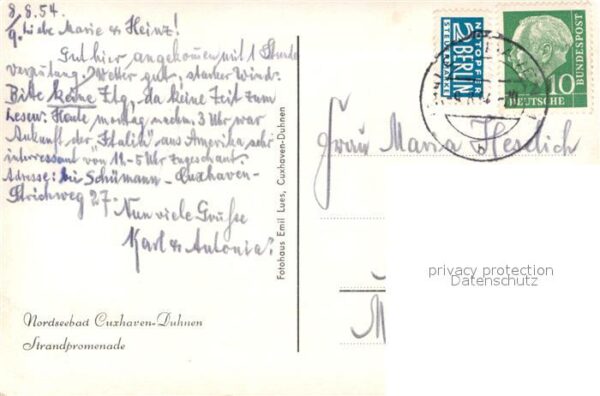 8.8.54.
9. Liebe Marie & Heinz!
Gut hier angekommen mit 1 Stunde
verspätung. Wetter gut, starker Wind.
Bitte keine Ztg, da keine Zeit zum
Lesen. Heute montag nachm. 3 Uhr war
Ankunft der "Italia" aus Amerika sehr
interessant von 11-5 Uhr zugeschaut.
Adresse: bei Schümann - Cuxhaven-
Strichweg 27.
Nun viele Grüße
Karl & Antonia.
Nordseebad Cuxhaven-Duhnen
Strandpromenade
Fotohaus Emil Lues, Cuxhaven-Duhnen
NOTOPFER
2 BERLIN
STEUERMARKE
DEUTSCHE
BUNDESPOST
10
b
Frau Maria
M
privacy protection
Datenschutz